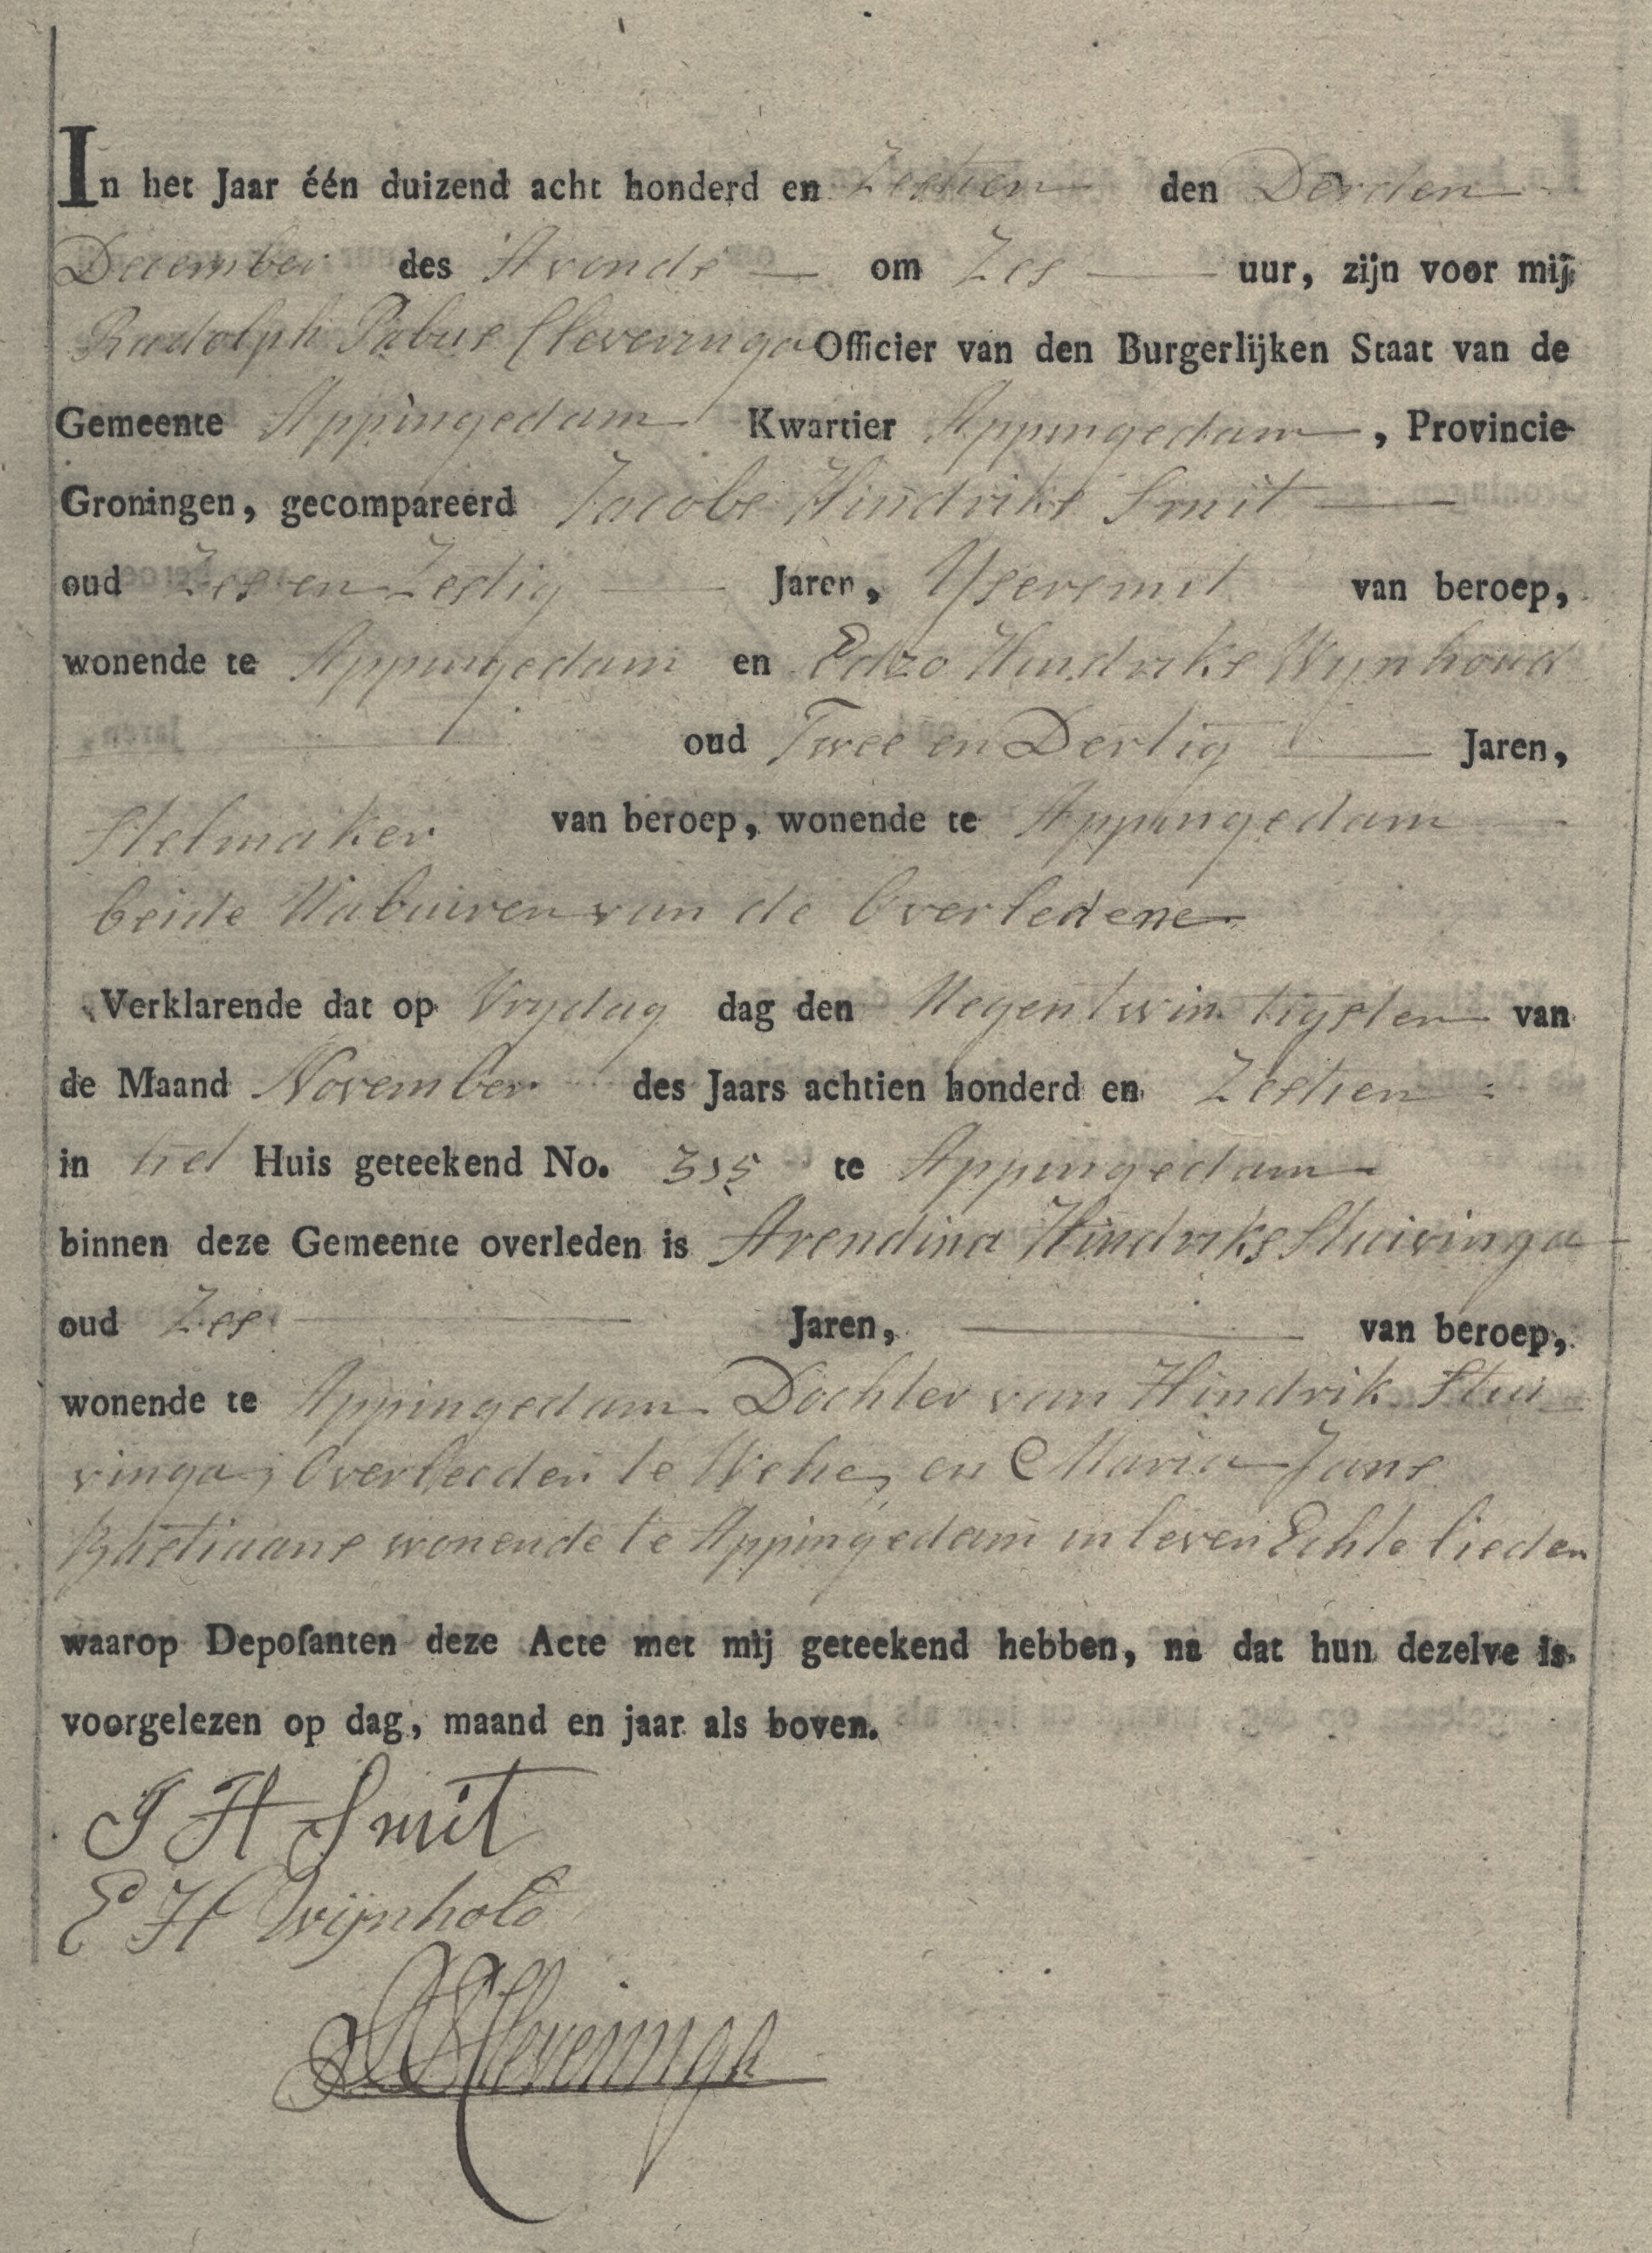 In het Jaar één duizend acht honderd en Zestien den Derden
December des Avonds om Zes uur, zijn voor mij
Rudolph Pabus Cleveringa Officier van den Burgerlijken Staat van de
Gemeente Appingedam Kwartier Appingedam, Provincie
Groningen, gecompareerd Jacobs Hindriks Smit
oud Zes en Zestig Jaren, Ysersmit van beroep,
wonende te Appingedam en Edzo Hindriks Wijnhold
oud Twee en Dertig Jaren,
Stelmaker van beroep, wonende te Appingedam
beide Nabuiren van de Overledene
Verklarende dat op Vrydag dag den Negentwintigsten van
de Maand November des Jaars achtien honderd en Zestien
in het Huis geteekend No. 315 te Appingedam
binnen deze Gemeente overleden is Arendina Hindriks Stuivinga
oud Zes Jaren, van beroep,
wonende te Appingedam Dochter van Hindrik Stui
vinga, Overleeden te Wehe, en Maria Jans
Bastiaans wonende te Appingedam in leven Echte lieden
waarop Deposanten deze Acte met mij geteekend hebben, na dat hun dezelve is
voorgelezen op dag, maand en jaar als boven.
J H Smit
E H Wijnhold
Cleveringa